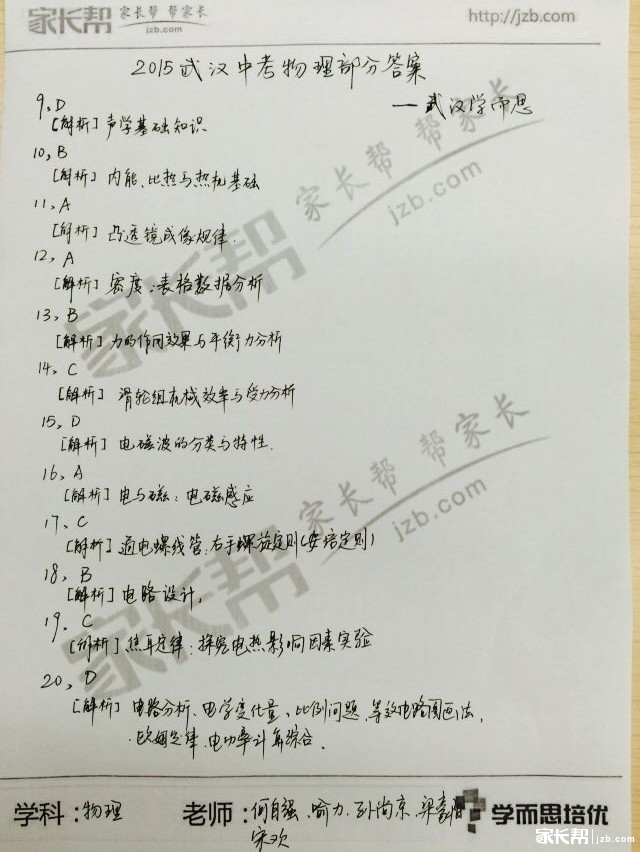 家长帮 家长帮 帮家长 jzb.com
http://jzb.com
2015武汉中考物理部分答案
—武汉学而思
9、D
[解析] 声学基础知识
10、B
[解析] 内能、比热与热机基础
11、A
[解析] 凸透镜成像规律.
12、A
[解析] 密度：表格数据分析
13、B
[解析] 力的作用效果与平衡力分析
14、C
[解析] 滑轮组机械效率与受力分析
15、D
[解析] 电磁波的分类与特性.
16、A
[解析] 电与磁：电磁感应
17、C
[解析] 通电螺线管：右手螺旋定则(安培定则)
18、B
[解析] 电路设计,
19、C
[解析] 焦耳定律：探究电热影响因素实验
20、D
[解析] 电路分析、电学变化量、比例问题、等效电路图画法,
欧姆定律、电功率计算综合.
家长帮 家长帮 帮家长 jzb.com
家长帮 家长帮 帮家长 jzb.com
学科：物理 老师：何自强、喻力、孙尚京、梁 学而思培优
宋欢
家长帮 jzb.com